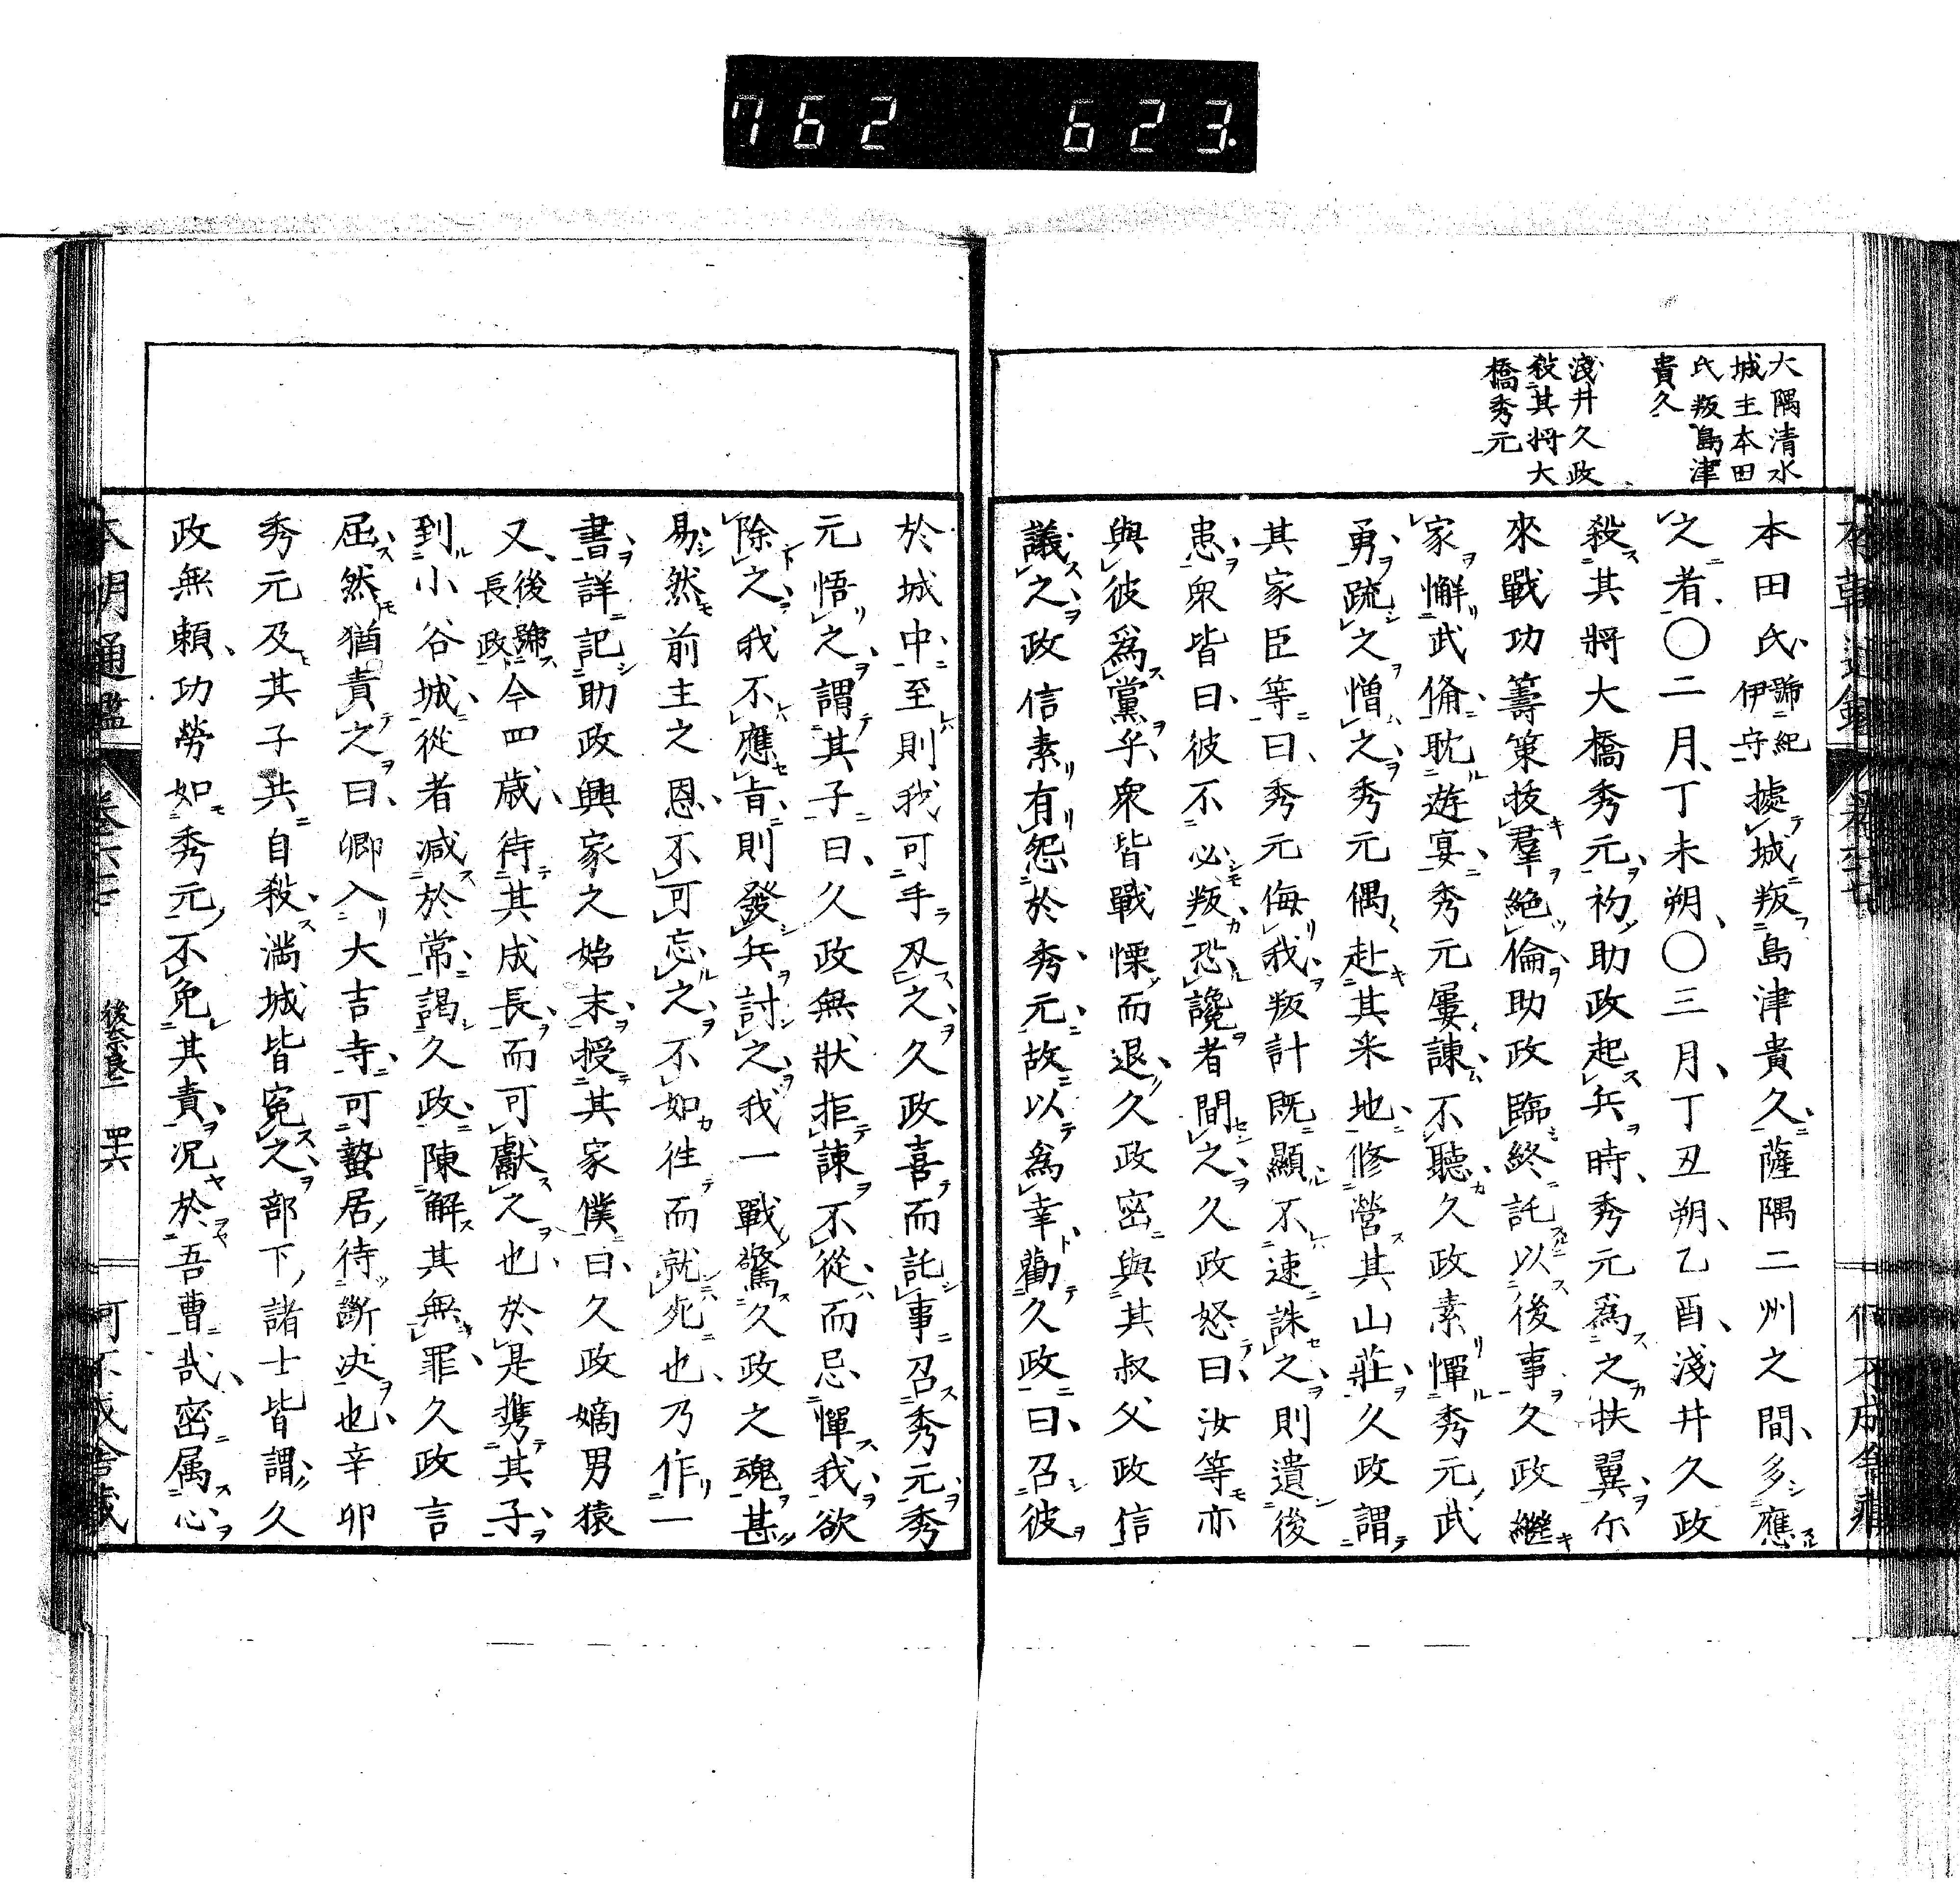 762 623.
大隅清水
城主本田
氏叛島津
貴久
淺井久政
殺其將大
橋秀元
本田氏號紀伊守據城叛島津貴久薩隅二州之間多應
之者〇二月丁未朔〇三月丁丑朔乙酉淺井久政
殺其將大橋秀元初助政起兵時秀元爲之扶翼尓
來戰功籌策拔羣絶倫助政臨終託以後事久政繼
家懈武偹耽遊宴秀元屢諫不聽久政素憚秀元武
勇疏之憎之秀元偶赴其釆地修營其山莊久政謂
其家臣等曰秀元侮我叛計既顯不速誅之則遺後
患衆皆曰彼不必叛恐讒者間之久政怒曰汝等亦
與彼爲黨乎衆皆戰慄而退久政密與其叔父政信
議之政信素有怨於秀元故以爲幸勸久政曰召彼
於城中至則我可手刃之久政喜而託事召秀元秀
元悟之謂其子曰久政無狀拒諫不從而忌憚我欲
除之我不應旨則發兵討之我一戰驚久政之魂甚
易然前主之恩不可忘之不如徃而就死也乃作一
書詳記助政興家之始末授其家僕曰久政嫡男猿
又後號長政今四歳待其成長而可獻之也於是携其子
到小谷城從者减於常謁久政陳解其無罪久政言
屈然猶責之曰卿入大吉寺可蟄居待斷决也辛卯
秀元及其子共自殺滿城皆寃之部下諸士皆謂久
政無頼功勞如秀元不免其責况於吾曹哉密属心
本朝通鑑 後奈良二 四十六